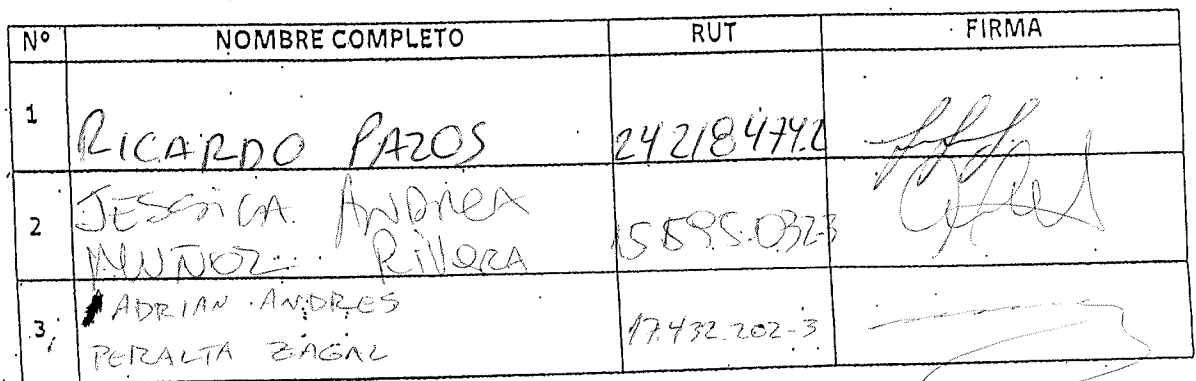 Nº NOMBRE COMPLETO RUT FIRMA
1 RICARDO PAZOS 24218474-2
2 JESSICA ANDREA
MUÑOZ RIVERA 15595.032-3
3 ADRIAN ANDRES
PERALTA ZAGAL 17.432.202-3